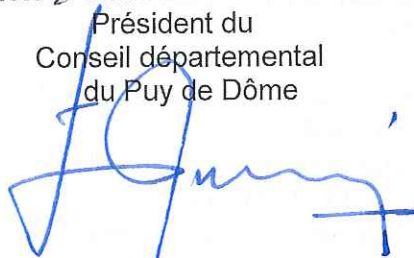 Président du
Conseil départemental
du Puy de Dôme